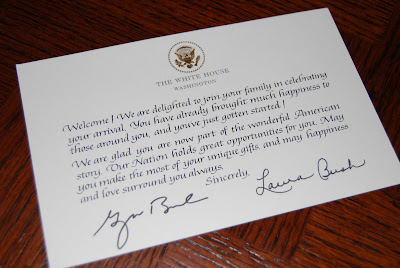 THE WHITE HOUSE
WASHINGTON
Welcome! We are delighted to join your family in celebrating
your arrival. You have already brought much happiness to
those around you, and you've just gotten started!
We are glad you are now part of the wonderful American
story. Our Nation holds great opportunities for you. May
you make the most of your unique gifts, and may happiness
and love surround you always.
Sincerely,
Laura Bush